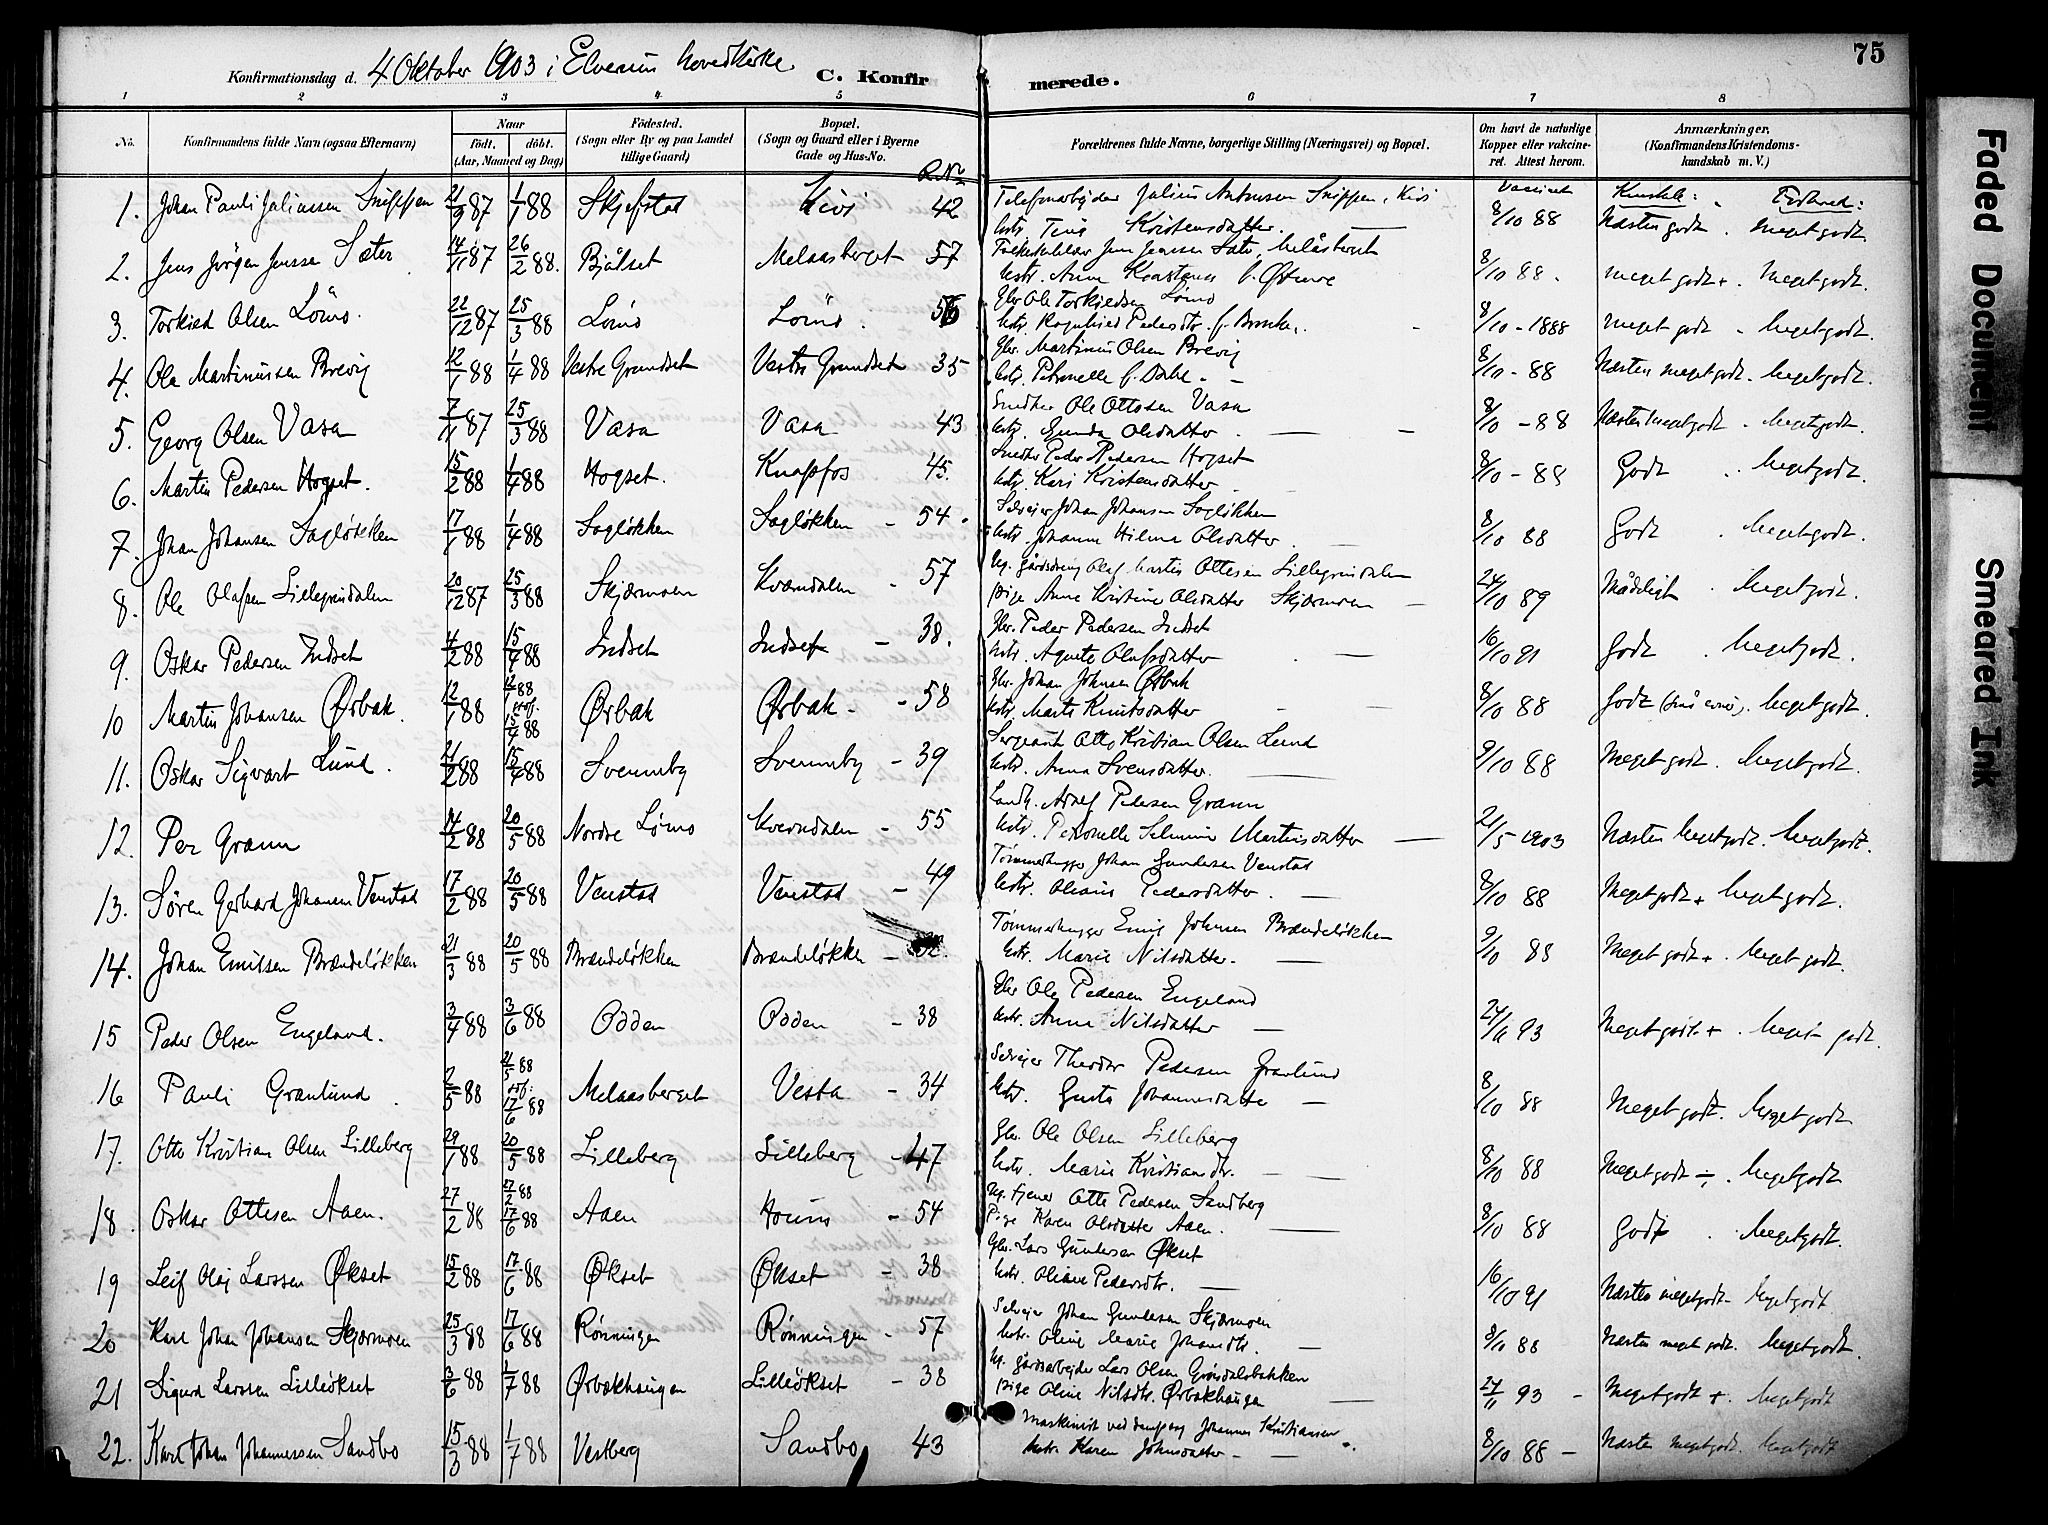 75
Konfirmationsdag d. 4 Oktober 1903 i Elverum hovedkirke
C. Konfirmerede.
1 2 3 4 5 6 7 8
No. Konfirmandens fulde Navn (ogsaa Efternavn) Naar født. døbt. (Aar, Maaned og Dag) Fødested. (Sogn eller By og paa Landet tillige Gaard) Bopæl. (Sogn og Gaard eller i Byerne Gade og Hus-No. Forældrenes fulde Navne, borgerlige Stilling (Næringsvei) og Bopæl. Om havt de naturlige Kopper eller vaccineret. Attest herom. Anmærkninger. (Konfirmandens Kristendomskundskab m. V.)
1. Johan Pauli Juliussen Snippen 21/9 87 1/1 88 Skjefstad Kivi 42 Telefonarbejder Julius Antonsen Snippen, Kivi
Kristensdatter. 8/10 88 Næsten godt. Meget godt.
2. Jens Jørgen Jensen Sæter 14/11 87 26/2 88. Bjølset Melaasberget 57 Jens Jensen Sæter, Melåsberget
Anna 8/10 88. Meget godt +. Meget godt.
3. Torkild Olsen Lømo. 22/12 87 25/3 88 Lømo Lømo. 56 Gbr Ole Torkildsen Lømo
Ragnhild Pedersdtr. 8/10 - 1888 Meget godt - Meget godt.
4. Ole Martinussen Brevig 12/1 88 1/4 88 Vestre Grundset Vestre Grundset 35 Gbr. Martinus Olsen Brevig
Petronelle f. Dahl. 8/10 - 88 Næsten meget godt. Meget godt.
5. Georg Olsen Vasa 7/11 87 25/3 88 Vasa Vasa 43 Snedker Ole Ottosen Vasa
Gunda Olsdatter. 8/10 - 88 Næsten meget godt. Meget godt.
6. Martin Pedersen Hogset. 15/2 88 1/4 88 Hogset. Knapfos 45. Snedker Peder Pedersen Hogset
Kari Kristensdatter. 8/10 - 88 Godt. Meget godt.
7. Johan Johansen Sagløkken 17/1 88 1/4 88 Sagløkken Sagløkken - 54. Selveier Johan Johansen Sagløkken
Johanne Hilma Olsdatter. 8/10 88 Godt. Meget godt.
8. Ole Olafsen Lillegrindalen 20/12 87 25/3 88 Skjærmoen Kværndalen - 57 Ug. gårdsdreng Olaf Martin Ottesen Lillegrindalen
pige Anne Kristine Olsdatter Skjærmoen 24/10 89 Mådeligt. Meget godt.
9. Oskar Pedersen Indset 4/2 88 15/4 88 Indset Indset - 38. Gbr. Peder Pedersen Indset
Agnete Olafsdatter 16/10 91 Godt. Meget godt.
10 Martin Johansen Ørbæk. 12/1 88 15/4 88 Ørbæk Ørbæk. - 58 Gbr. Johan Johnsen Ørbæk
Marte Knutsdatter 8/10 88 Godt (små evner). Meget godt.
11. Oskar Sigvart Lund. 21/2 88 15/4 88 Svenneby Svenneby - 39 Sergeant Otto Kristian Olsen Lund
Anna Svensdatter. 9/10 88 Meget godt. Meget godt.
12. Per Grann 14/2 88 20/5 88 Nordre Lømo Kverndalen - 55 Adolf Pedersen Grann
Petronelle Martinsdatter 2/5 1903 Næsten Meget godt. Meget godt.
13. Søren Gerhard Johansen Venstad 17/2 88 20/5 88 Venstad Venstad - 49 Tømmerhugger Johan Gundersen Venstad
Pedersdatter. 8/10 88 Meget godt + Meget godt.
14. Johan Emilsen Brændeløkken 21/3 88 20/5 88 Brændeløkken Brændeløkken - Tømmerhugger Emil Johnsen Brændeløkken
Marie Nilsdatter. 9/10 88 Meget godt +. Meget godt.
15 Peder Olsen Engeland. 3/4 88 3/6 88 Odden Odden - 38 Gbr Ole Pedersen Engeland
Anna Nilsdatter 24/11 93 Meget godt +. Meget godt.
16 Pauli Grønlund. 2/5 88 21/5 88 17/6 88 Melaasberget Vesta - 34 Selvejer Theodor Pedersen Grønlund
Gusta Johannesdatter 8/10 88 Meget godt. Meget godt
17. Otto Kristian Olsen Lilleberg 29/1 88 20/5 88 Lilleberg Lilleberg - 47 Gbr. Ole Olsen Lilleberg
Marie Kristiansdtr. 8/10 88 Meget godt ÷. Meget godt
18. Oskar Ottesen Aaen. 27/2 88 27/2 88 17/6 88 Aaen - 54 Ug. tjener Otto Pedersen Sandberg
Pige Karen Olsdatter Aaen. 8/10 88 Godt. Meget godt.
19 Leif Olaj Larssen Økset 15/2 88 17/6 88 Økset Økset - 38 Gbr. Lars Gundersen Økset
Oliane Pedersdtr. 16/10 91 Næsten meget godt - Meget godt
20 Karl Johan Johansen Skjærmoen 25/3 88 17/6 88 Rønningen Rønningen - 57 Selveier Johan Gundersen Skjærmoen
Oline Marie Johansdtr. 8/10 88 Næsten meget godt. Meget godt.
21 Sigurd Larssen Lilleøkset 3/6 88 1/7 88 Ørbækhaugen Lilleøkset - 38 Ug. gårdsarbejder Lars Olsen Grøndalsbakken
pige Oline Nilsdtr. Ørbækhaugen 24/11 93 - Meget godt +. Meget godt
22. Karl Johan Johannessen Sandbo 15/3 88 1/7 88 Vestberg Sandbo 43 Maskinist ved dampsag Johannes Kristiansen
Karen Johnsdatter - 8/10 88 - Næsten meget godt. Meget godt
Faded Document
Smeared Ink